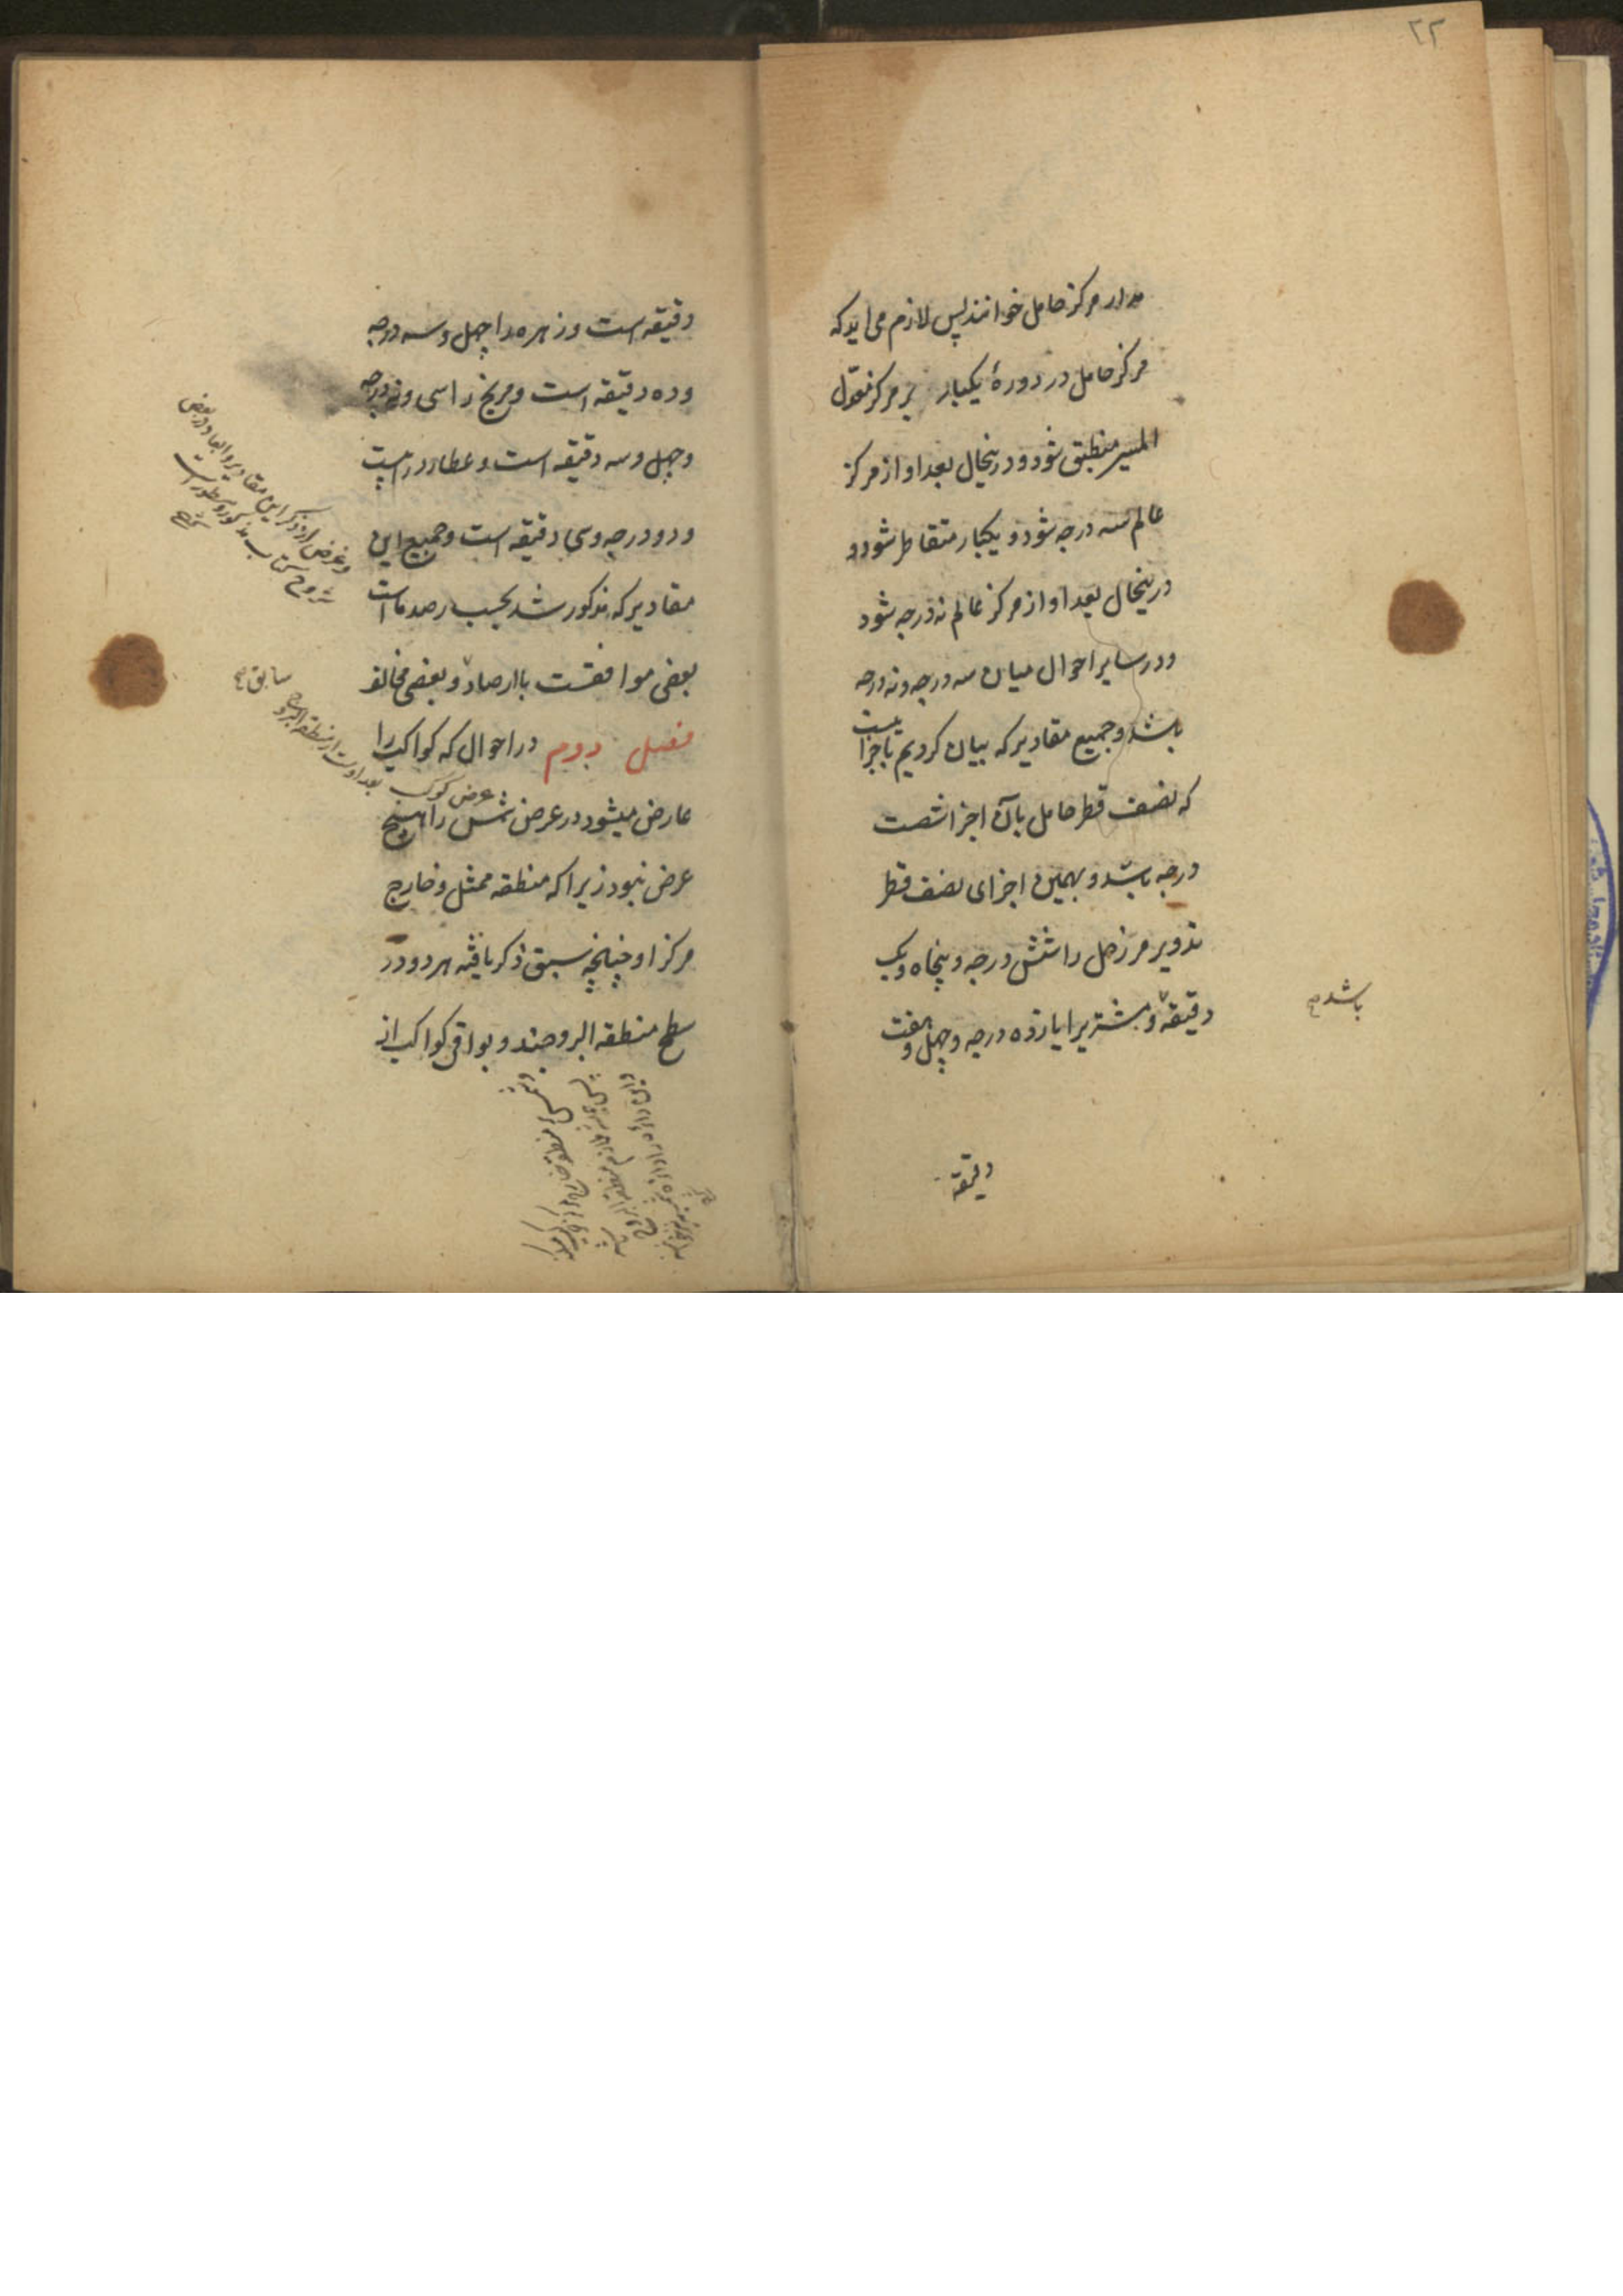 ۲۲
مدار مرکز حامل خوانند پس لازم می‌اید که
مرکز حامل در دورهٔ یکبار بر مرکز معدل
المسیر منطبق شود و درینحال بعد او از مرکز
عالم سه درجه شود و یکبار متقاطر شود و
درینحال بعد او از مرکز عالم نه درجه شود
و در سایر احوال میان سه درجه و نه درجه
باشد و جمیع مقادیر که بیان کردیم باجزا ئیست
که نصف قطر حامل بآن اجزا شصت
درجه باشد و بهمین اجزای نصف قطر
تدویر مر زحل را شش درجه و پنجاه و یک
دقیقه و مشتریرا یازده درجه و چهل و هفت
باشد
دقیقه
دقیقه است و زهره را چهل و سه درجه
و ده دقیقه است و مریخ را سی و نه درجه
و چهل و سه دقیقه است و عطارد را بیست
و دو درجه و سی دقیقه است و جمیع این
مقادیر که مذکور شد بحسب رصدهااست
بعضی موافقست باارصاد و بعضی مخالف
فصل دوم در احوال که کواکب را
عارض میشود در عرض شمس را هیچ
عرض نبود زیرا که منطقه ممثل و خارج
مرکز او چنانچه سبق ذکر یافته هر دو در
سطح منطقه البروجند و بواقی کواکب از
و غرض از ذکر این مقادیر و ابعاد در بعض
شروح کتاب مذکور و مسطور است
شرح
سابق
عرض کوکب
بعد اوست از منطقه البروج